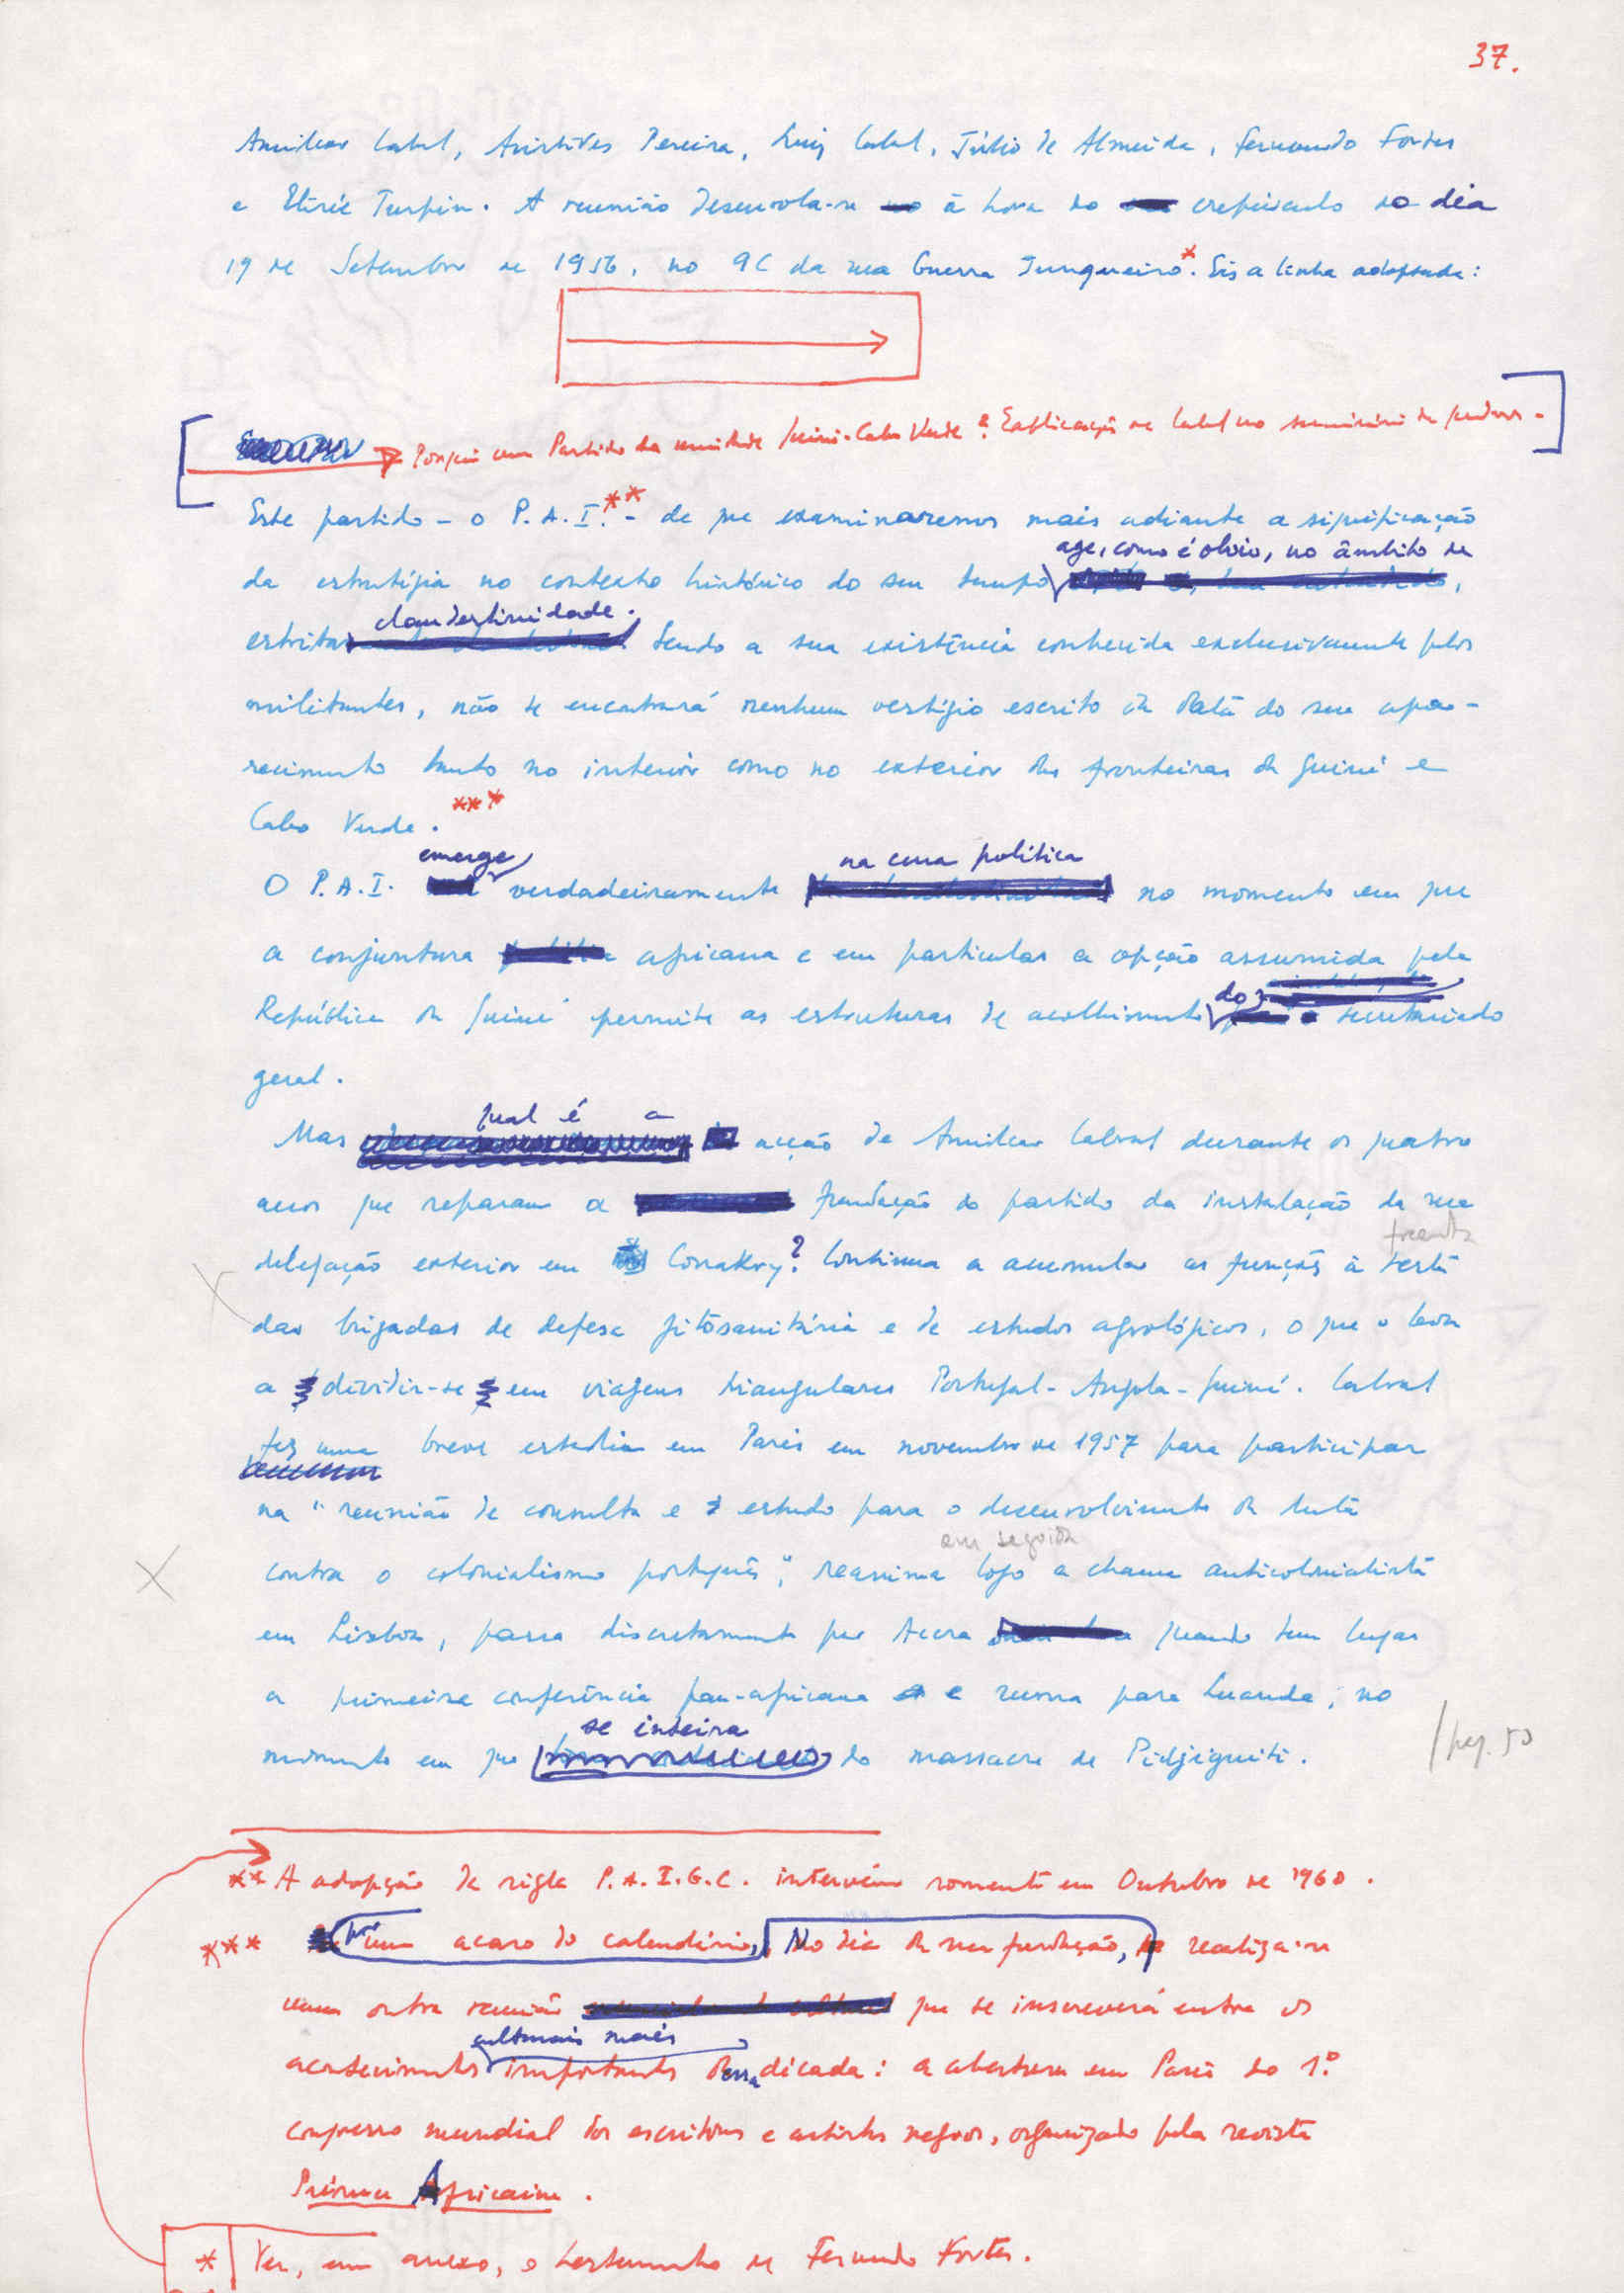 37.
Amílcar Cabral, Aristides Pereira, Luiz Cabral, Júlio de Almeida, Fernando Fortes
e Elisée Turpin. A reunião desenrola-se à hora do crepúsculo do dia
19 de Setembro de 1956, no 9C da rua Guerra Junqueiro*. Eis a linha adoptada:
Porquê um Partido da unidade Guiné-Cabo Verde? Explicação de Cabral no seminário de quadros.
Este partido - o P.A.I.** - de que examinaremos mais adiante a significação
age, como é obvio, no âmbito da
da estratégia no contexto histórico do seu tempo,
clandestinidade.
estrita Sendo a sua existência conhecida exclusivamente pelos
militantes, não se encontrará nenhum vestígio escrito da data do seu apa-
recimento tanto no interior como no exterior das fronteiras da Guiné e
Cabo Verde. ***
emerge na cena política
O P.A.I. verdadeiramente no momento em que
a conjuntura africana e em particular a opção assumida pela
República da Guiné permite as estruturas de acolhimento do secretariado
geral.
qual é a
Mas acção de Amílcar Cabral durante os quatro
anos que separam a fundação do partido da instalação da sua
frente
delegação exterior em Conakry? Continua a acumular as funções à testa
das brigadas de defesa fitosanitária e de estudos agrológicos, o que o leva
a dividir-se em viagens triangulares Portugal-Angola-Guiné. Cabral
fez uma breve estadia em Paris em novembro de 1957 para participar
na "reunião de consulta e estudo para o desenvolvimento da luta
em seguida
contra o colonialismo português", reanima logo a chama anticolonialista
em Lisboa, passa discretamente por Accra quando tem lugar
a primeira conferência pan-africana e ruma para Luanda, no
se inteira
momento em que do massacre de Pidjiguiti.
/pag. 50
** A adopção da sigla P.A.I.G.C. intervém somente em Outubro de 1960.
*** por um acaso do calendário, No dia da sua fundação, realiza-se
uma outra reunião que se inscreverá entre os
culturais mais
acontecimentos importantes dessa década: a abertura em Paris do 1.º
congresso mundial dos escritores e artistas negros, organizado pela revista
Présence Africaine.
* Ver, em anexo, o testemunho de Fernando Fortes.